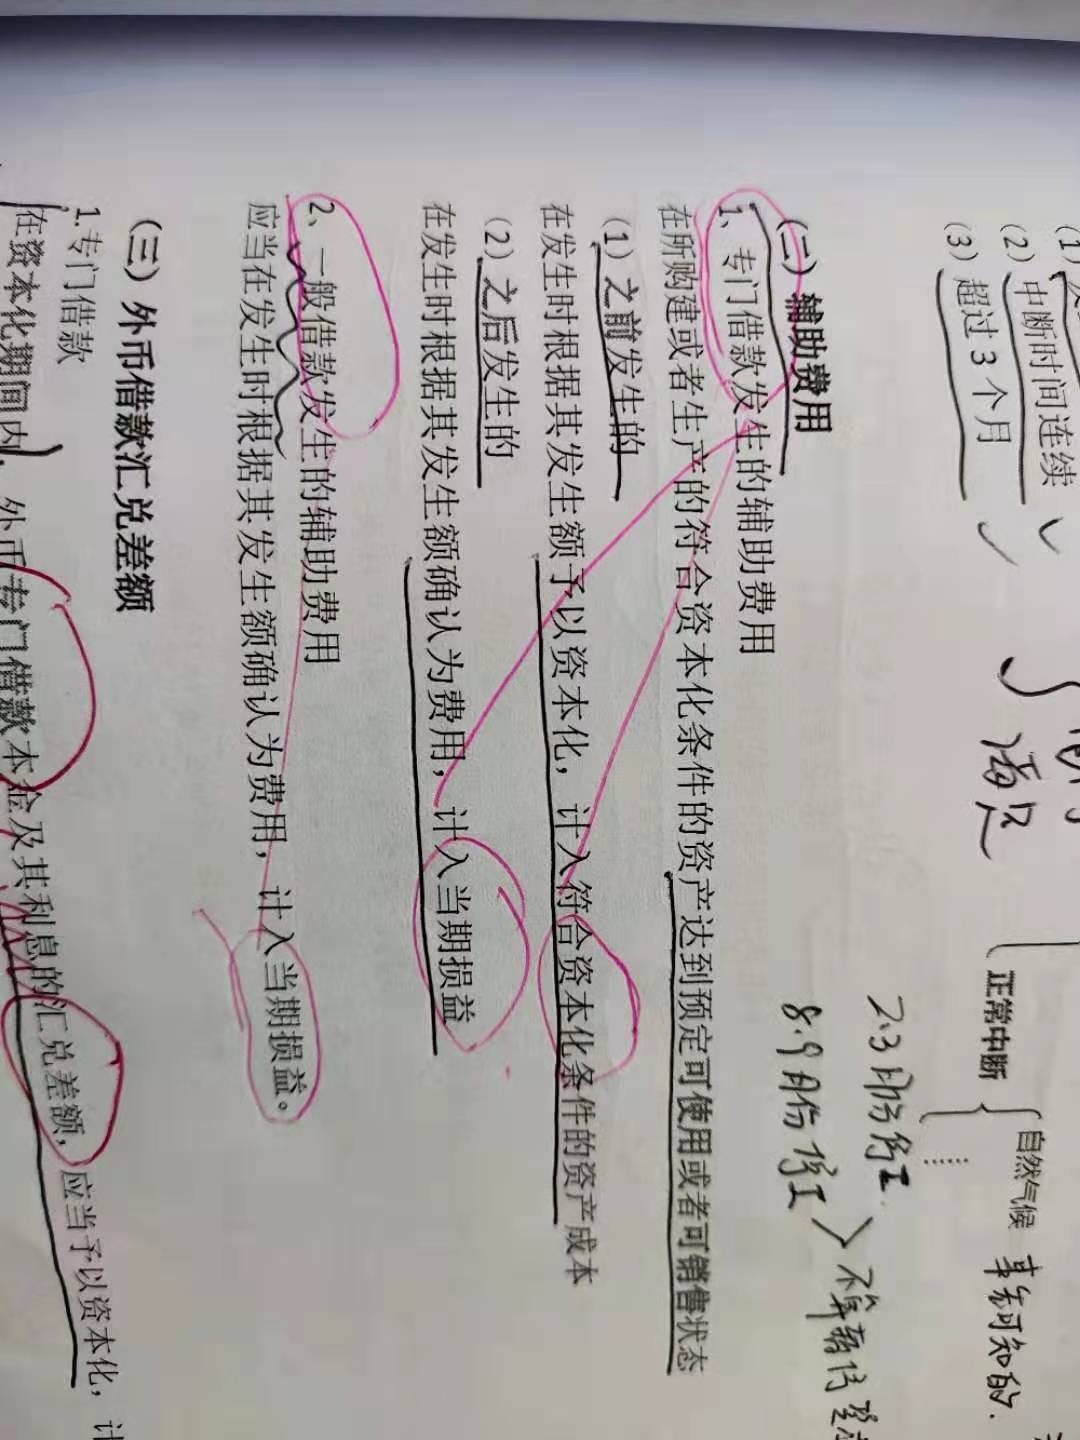 (2) 中断时间连续
(3) 超过3个月
满足
正常中断
自然气候
事先可知的.
2.3月份停工
8.9月份停工
(二) 辅助费用
1、专门借款发生的辅助费用
在所购建或者生产的符合资本化条件的资产达到预定可使用或者可销售状态
(1) 之前发生的
在发生时根据其发生额予以资本化，计入符合资本化条件的资产成本
(2) 之后发生的
在发生时根据其发生额确认为费用，计入当期损益
2、一般借款发生的辅助费用
应当在发生时根据其发生额确认为费用，计入当期损益。
(三) 外币借款汇兑差额
1.专门借款
在资本化期间内，外币专门借款本金及其利息的汇兑差额，应当予以资本化，计